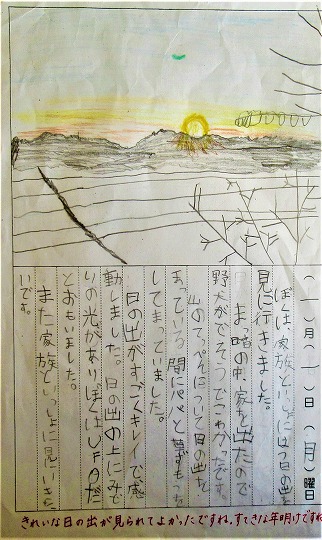 (一)月(一)日(月)曜日
ぼくは、家族といっしょにはつ日の出を
見に行きました。
まっ暗の中、家を出たので
野犬がでそうでこわかったです。
山のてっぺんについて日の出を
まっている間にパパと
してまっていました。
日の出がすごくキレイで、感
動しました。日の出の上にみど
りの光がありぼくはUFOだ
とおもいました。
また家族といっしょに見にいきた
いです。
きれいな日の出が見られてよかったですね。すてきな年明けですね